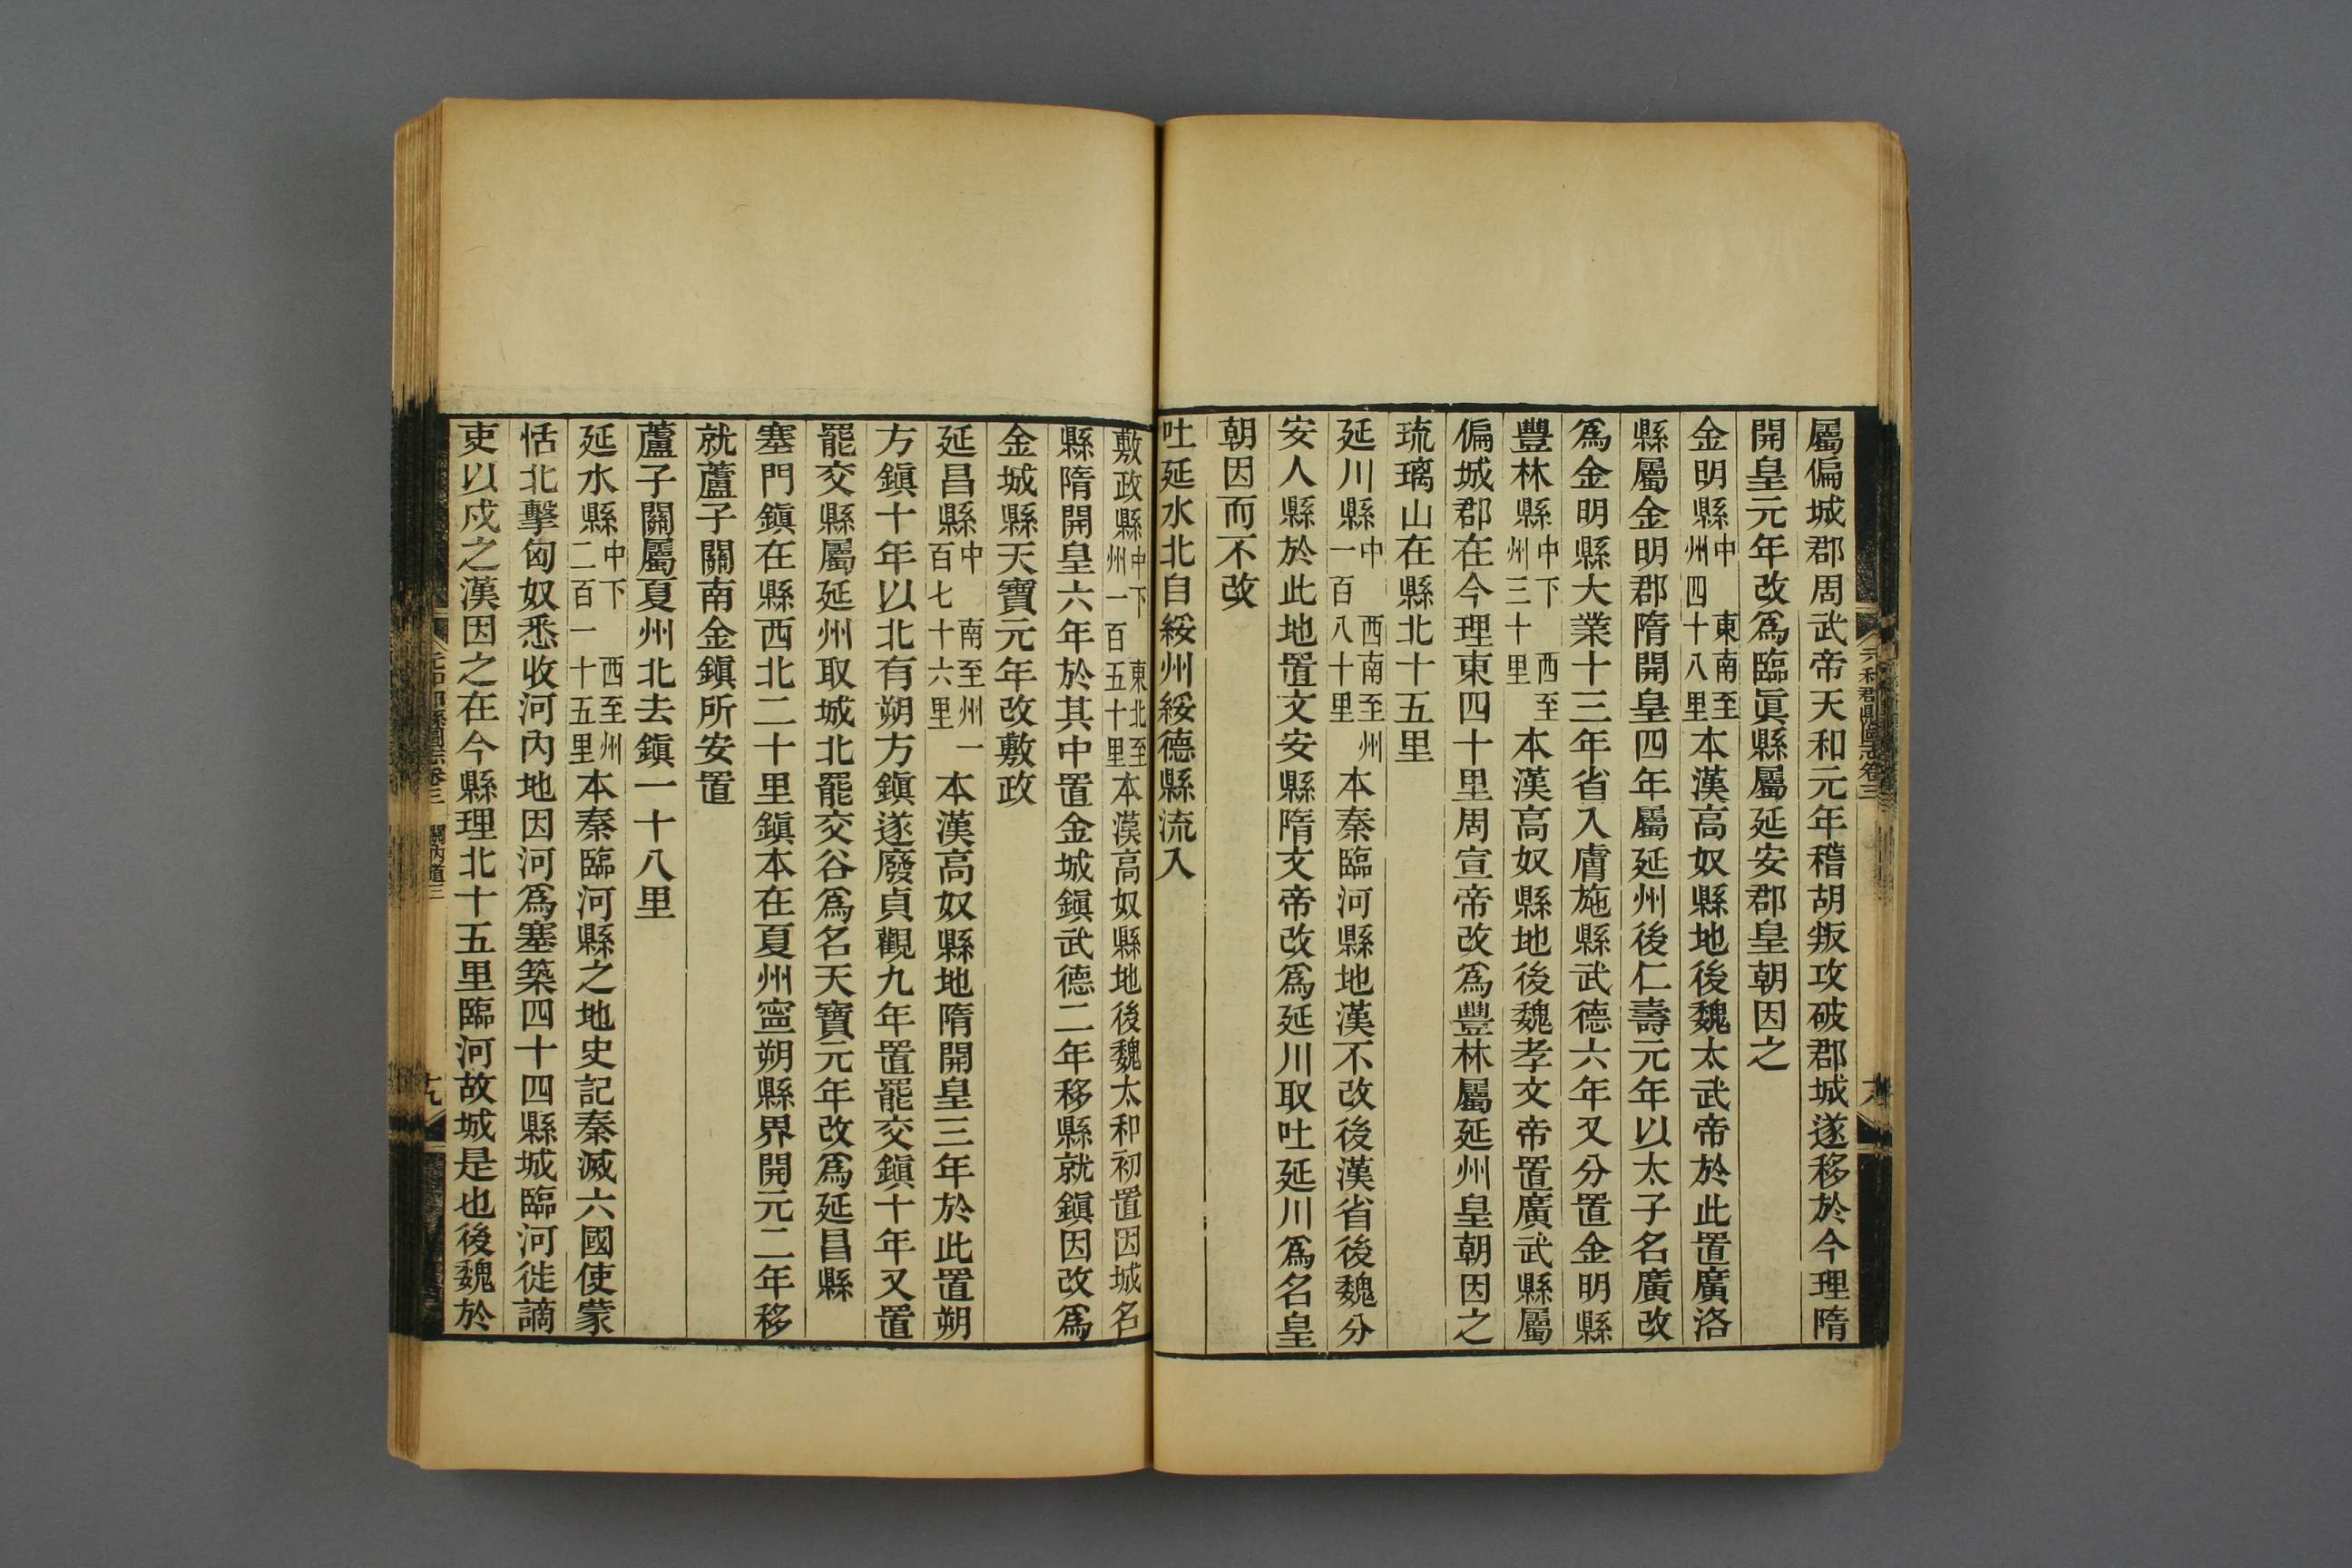 屬偏城郡周武帝天和元年稽胡叛攻破郡城遂移於今理隋
開皇元年改爲臨眞縣屬延安郡皇朝因之
金明縣中 東南至州四十八里本漢高奴縣地後魏太武帝於此置廣洛
縣屬金明郡隋開皇四年屬延州後仁壽元年以太子名廣改
爲金明縣大業十三年省入膚施縣武德六年又分置金明縣
豐林縣中下 西至州三十里本漢高奴縣地後魏孝文帝置廣武縣屬
偏城郡在今理東四十里周宣帝改爲豐林屬延州皇朝因之
琉璃山在縣北十五里
延川縣中 西南至州一百八十里本秦臨河縣地漢不改後漢省後魏分
安人縣於此地置文安縣隋文帝改爲延川取吐延川爲名皇
朝因而不改
吐延水北自綏州綏德縣流入
敷政縣中下 東北至州一百五十里本漢高奴縣地後魏太和初置因城名
縣隋開皇六年於其中置金城鎭武德二年移縣就鎭因改爲
金城縣天寶元年改敷政
延昌縣中 南至州一百七十六里本漢高奴縣地隋開皇三年於此置朔
方鎭十年以北有朔方鎭遂廢貞觀九年置罷交鎭十年又置
罷交縣屬延州取城北罷交谷爲名天寶元年改爲延昌縣
塞門鎭在縣西北二十里鎭本在夏州寧朔縣界開元二年移
就蘆子關南金鎭所安置
蘆子關屬夏州北去鎭一十八里
延水縣中下 西至州二百一十五里本秦臨河縣之地史記秦滅六國使蒙
恬北擊匈奴悉收河內地因河爲塞築四十四縣城臨河徙謫
吏以戍之漢因之在今縣理北十五里臨河故城是也後魏於
元和郡縣圖志卷三
關內道三
十九